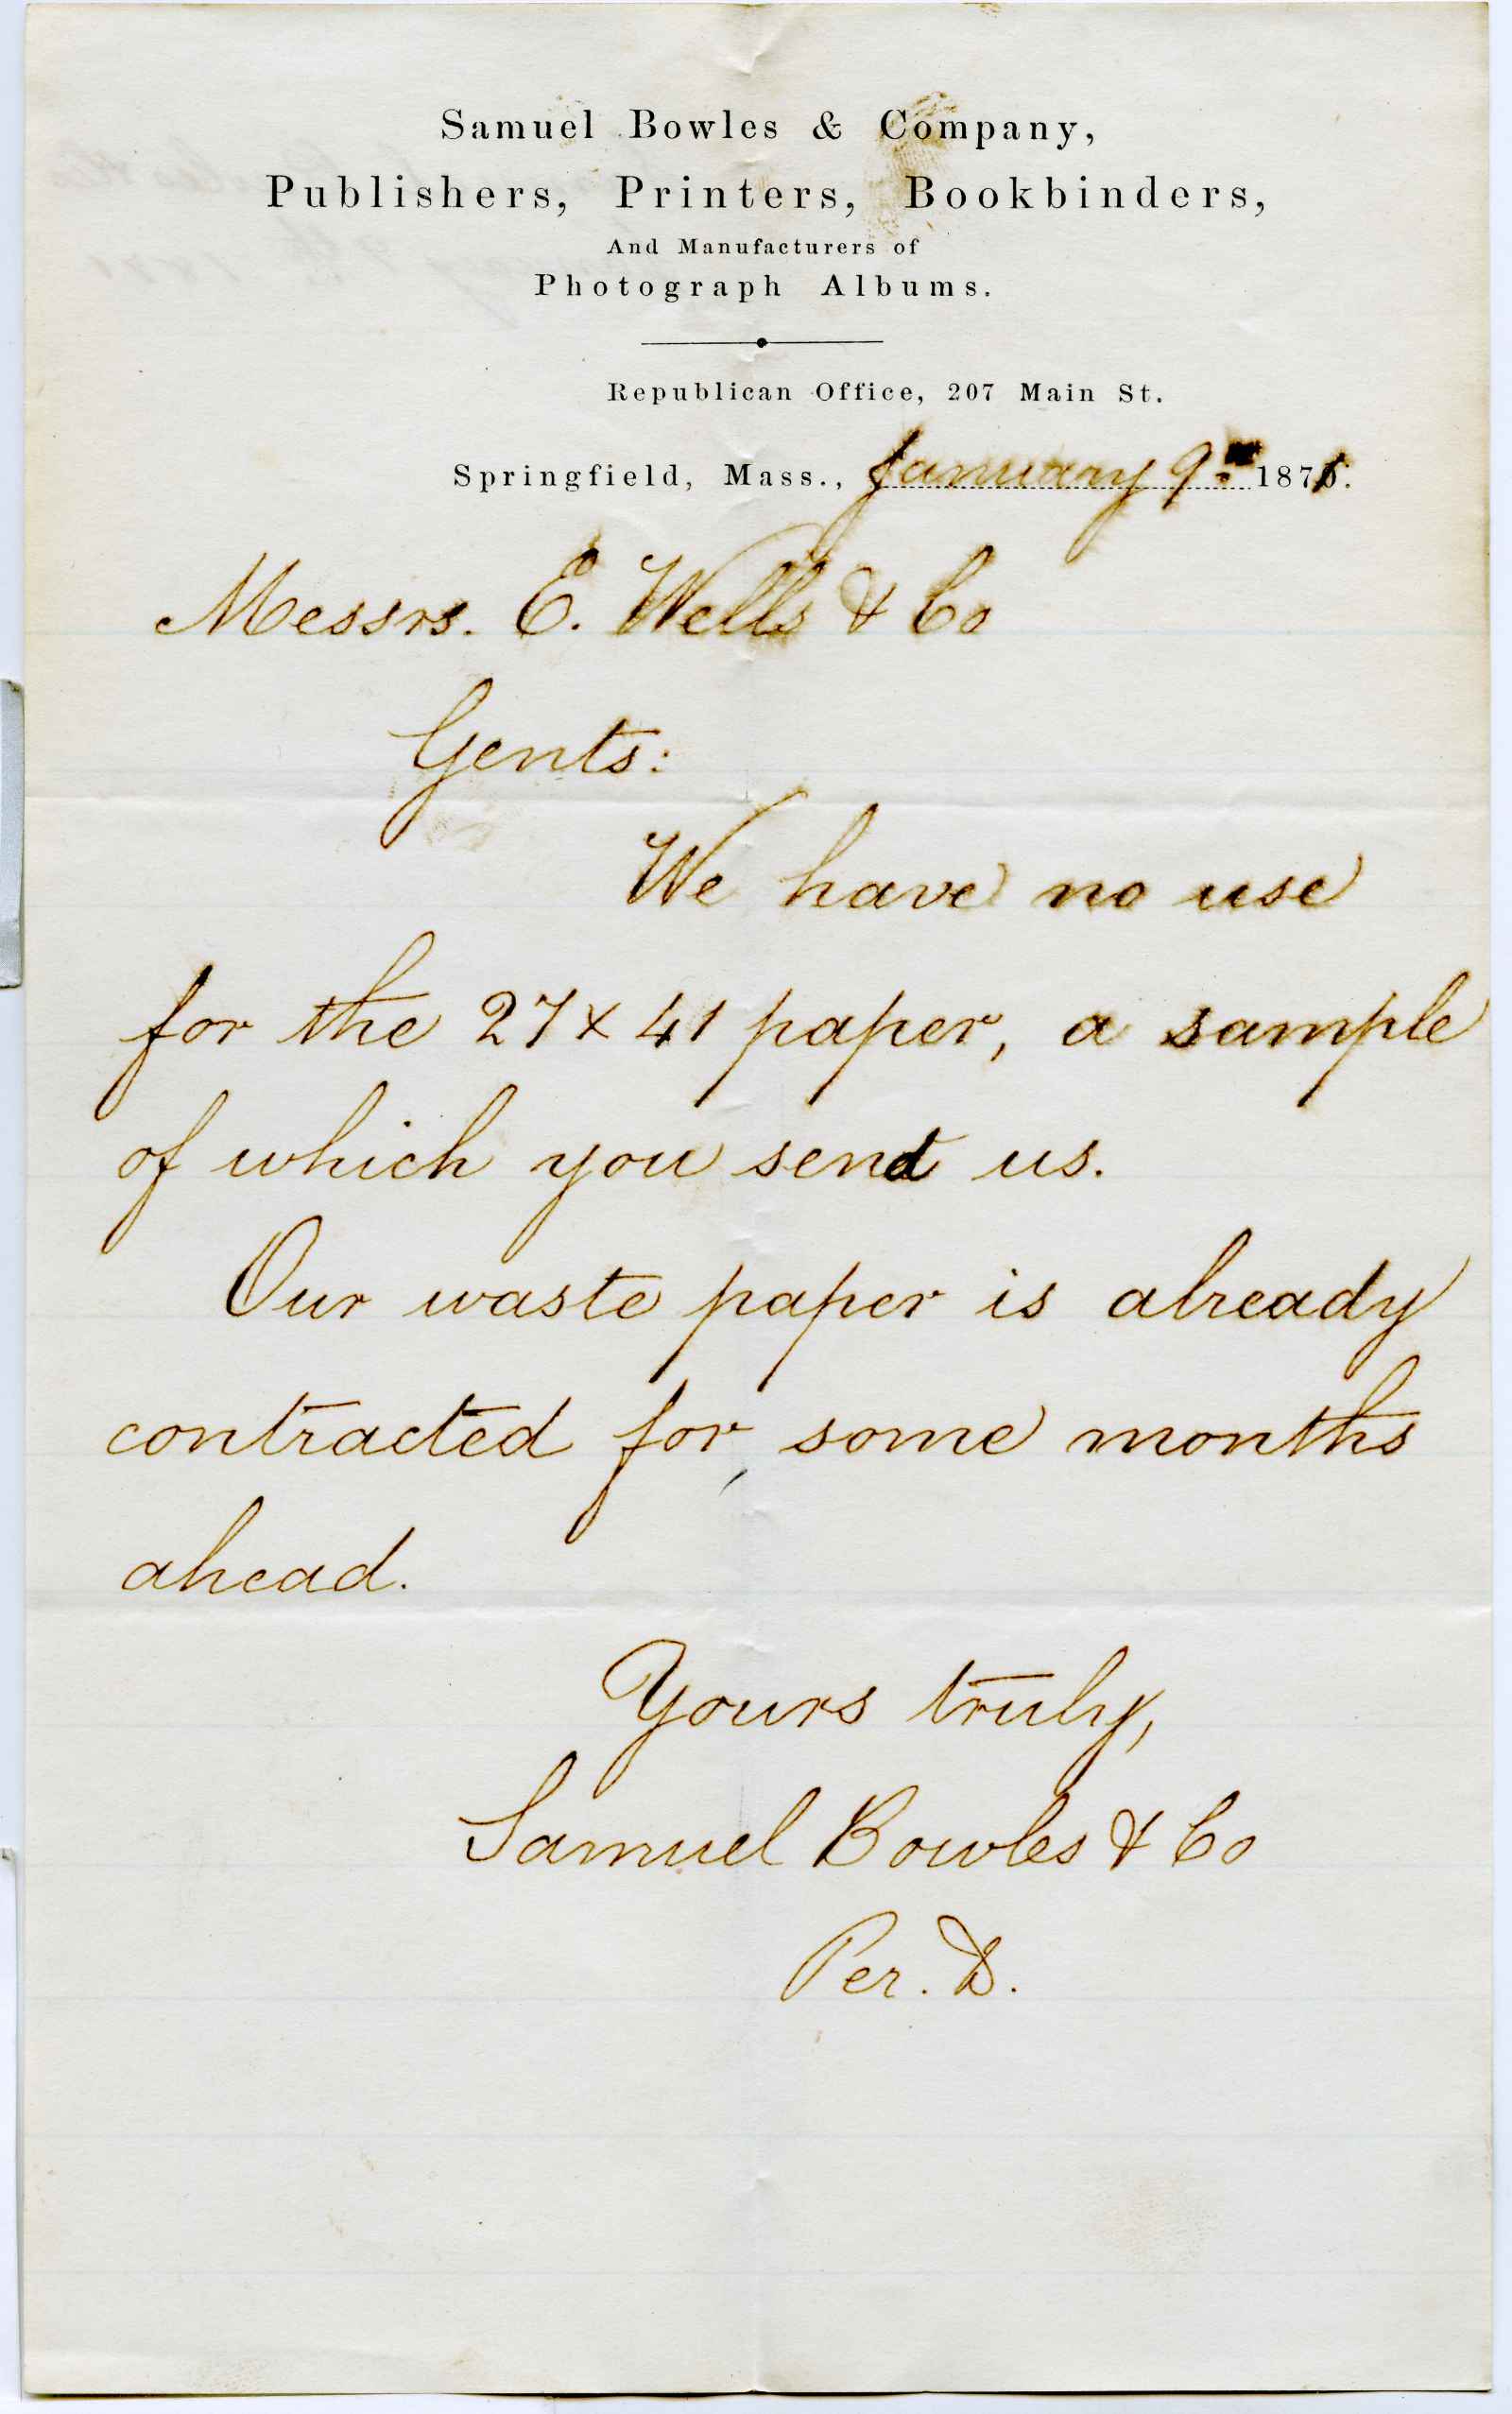 Samuel Bowles & Company,
Publishers, Printers, Bookbinders,
And Manufacturers of
Photograph Albums.
Republican Office, 207 Main St.
Springfield, Mass., January 9th 1871.
Messrs. E. Wells & Co
Gents:
We have no use
for the 27 x 41 paper, a sample
of which you send us.
Our waste paper is already
contracted for, some months
ahead.
Yours truly,
Samuel Bowles & Co
Per. D.